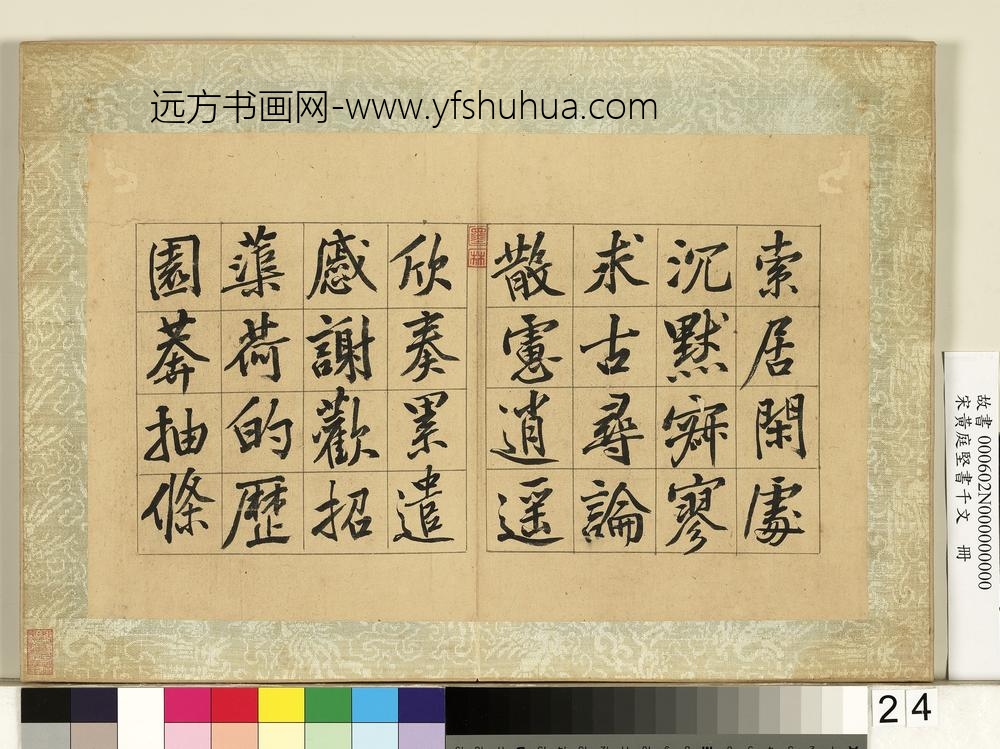 远方书画网-www.yfshuhua.com
索居閑處
沉默寂寥
求古尋論
散慮逍遥
欣奏累遣
慼謝歡招
蕖荷的歷
園莽抽條
故書 000602N000000000
宋黃庭堅書千文 冊
24